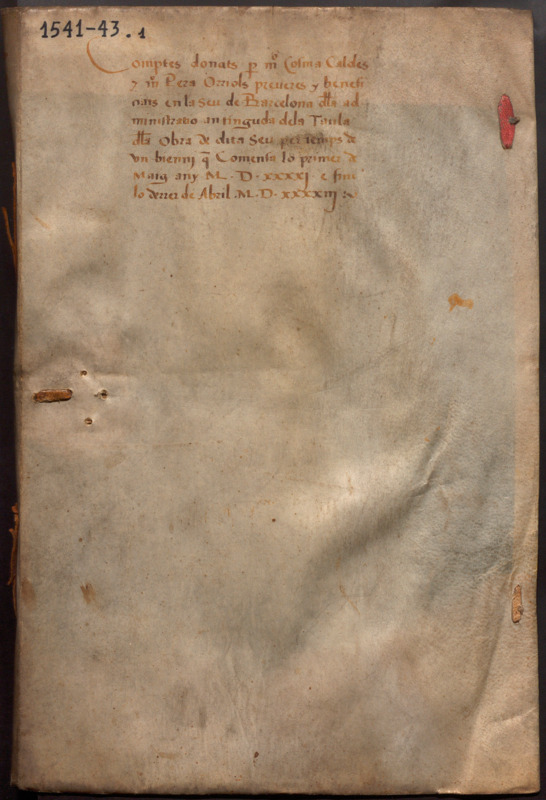 1541-43.1
Comptes donats p mº Cosma Caldes
y mº Pera Orriols preueres y benefi
ciats en la Seu de Barcelona dla ad
ministratio an tinguda dela Taula
dla Obra de dita Seu per temps de
vn bienni q̄ Comensa lo primer de
Maig any M. D. xxxxj e finí
lo derrer de Abril .M. D. xxxxiij